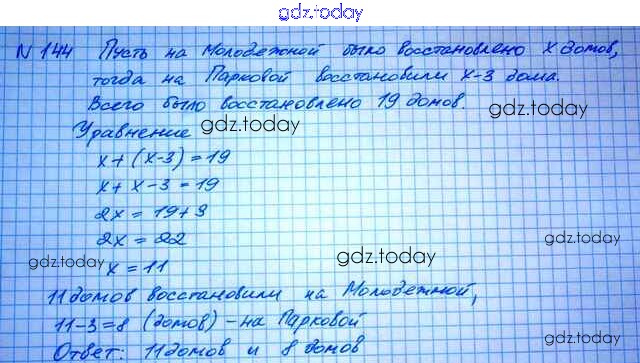 gdz.today
N 144 Пусть на Молодежной было восстановлено x домов,
тогда на Парковой восстановили x-3 дома.
Всего было восстановлено 19 домов.
Уравнение gdz.today gdz.today
x+(x-3)=19
x+x-3=19
2x=19+3
2x=22 gdz.today
gdz.today x=11 gdz.today
11 домов восстановили на Молодежной,
11-3=8 (домов) - на Парковой
Ответ: 11 домов и 8 домов gdz.today